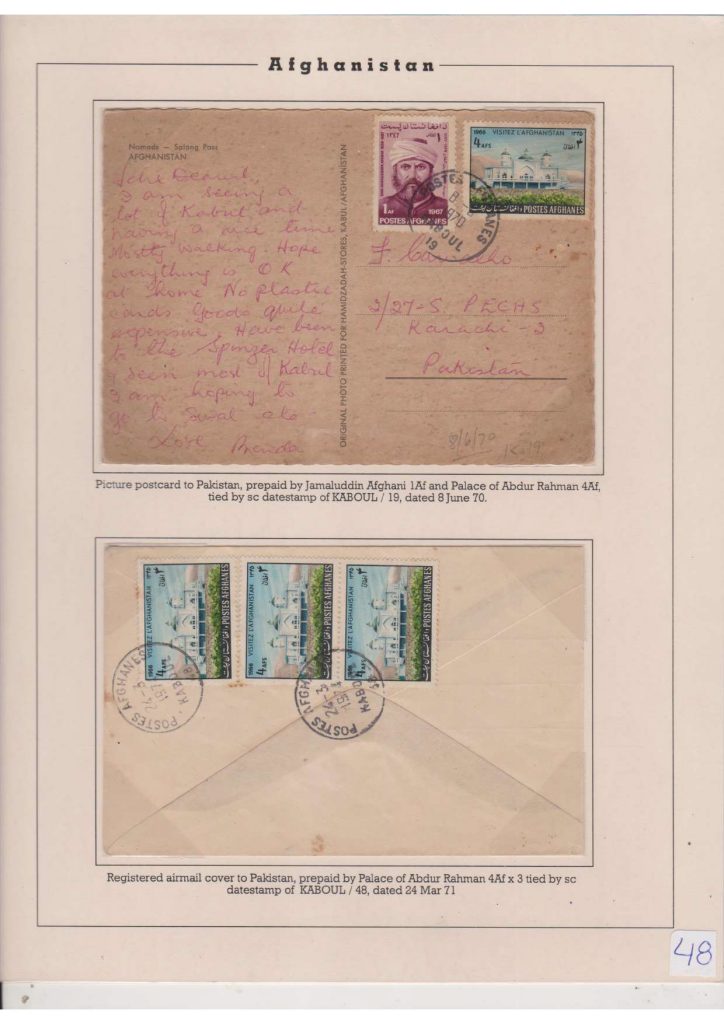 Afghanistan
Nomads — Salang Pass
AFGHANISTAN
I am seeing a
lot of Kabul and
having a nice time
Mostly walking. Hope
everything is OK
at home No plastic
cards Goods quite
expensive. Have been
to the Spinzer Hotel
& seen most of Kabul
I am hoping to
go to
Love Brenda
ORIGINAL PHOTO PRINTED FOR HAMIDZADAH-STORES, KABUL/AFGHANISTAN
د افغانستان پست
١٣٤٦
1 Af 1967
POSTES AFGHANES
1966 VISITEZ L'AFGHANISTAN ١٣٤٥
4 AFS
POSTES AFGHANES
POSTES AFGHANES
KABOUL
19
F. Carvalho
2/27-S, PECHS
Karachi-2
Pakistan
8/6/70
Picture postcard to Pakistan, prepaid by Jamaluddin Afghani 1Af and Palace of Abdur Rahman 4Af,
tied by sc datestamp of KABOUL / 19, dated 8 June 70.
1966 VISITEZ L'AFGHANISTAN ١٣٤٥
4 AFS
POSTES AFGHANES
1966 VISITEZ L'AFGHANISTAN ١٣٤٥
4 AFS
POSTES AFGHANES
1966 VISITEZ L'AFGHANISTAN ١٣٤٥
4 AFS
POSTES AFGHANES
POSTES AFGHANES
24-3
KABOUL
POSTES AFGHANES
24-3
KABOUL
Registered airmail cover to Pakistan, prepaid by Palace of Abdur Rahman 4Af x 3 tied by sc
datestamp of KABOUL / 48, dated 24 Mar 71
48